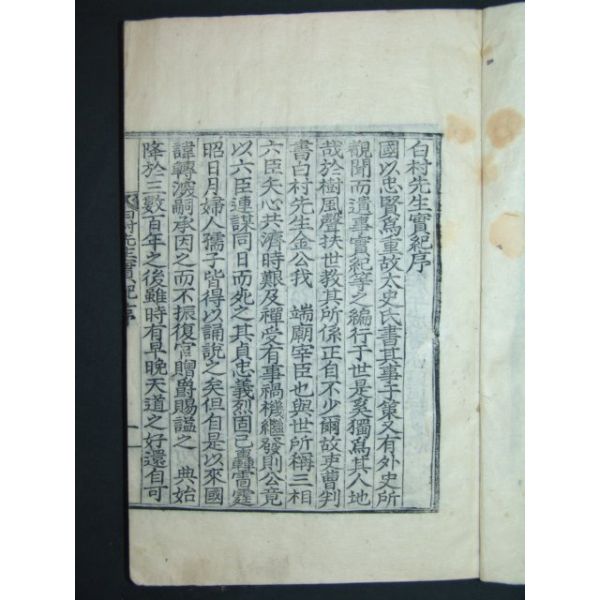 白村先生實紀序
國以忠賢爲重故太史氏書其事于策又有外史所
觀聞而遺事實紀等之編行于世是奚獨爲其人地
哉於樹風聲扶世教其所係正自不少爾故吏曹判
書白村先生金公我　端廟宰臣也與世所稱三相
六臣矢心共濟時艱及禪受有事禍機繼發則公竟
以六臣連謀同日而死之其貞忠義烈固已轟雷霆
昭日月婦人孺子皆得以誦說之矣但自是以來國
諱轉深嗣承因之而不振復官贈爵賜諡之　典始
降於三數百年之後雖時有早晩天道之好還自可
白村先生實紀序
一